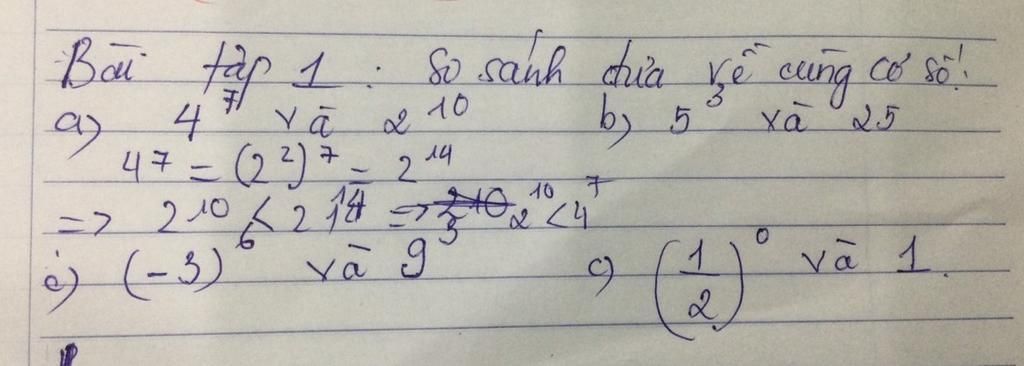 Bài tập 1 : So sánh đưa về cùng cơ số!
a) 4⁷ và 2¹⁰ b) 5³ và 25
4⁷ = (2²)⁷ = 2¹⁴
=> 2¹⁰ < 2¹⁴ => 2¹⁰ < 4⁷
c) (-3)⁶ và 9³ c) (1/2)⁰ và 1.